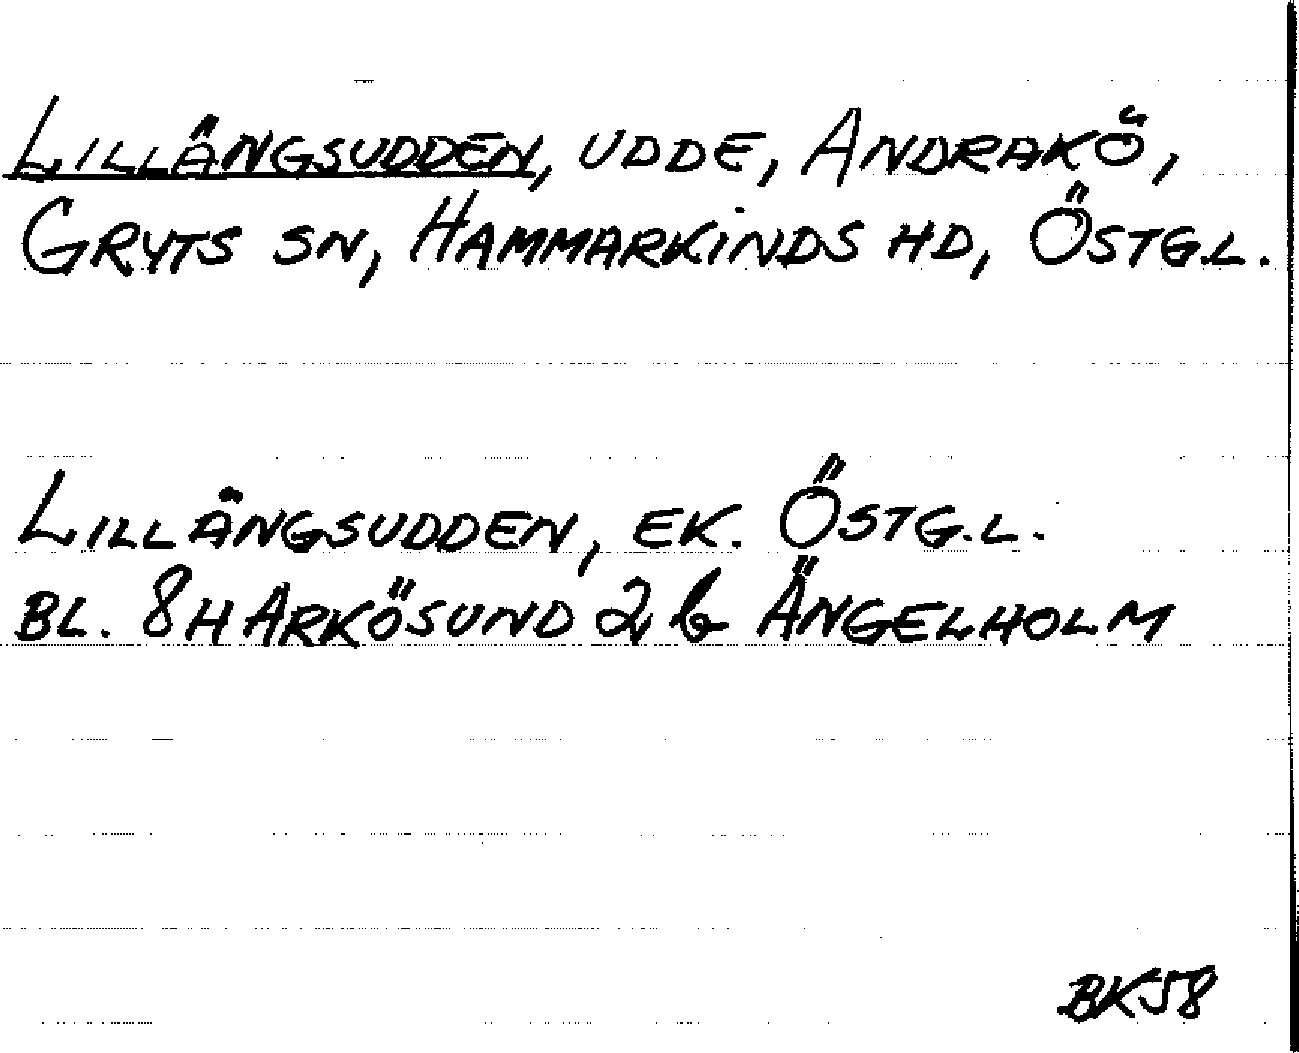 LILLÄNGSUDDEN, UDDE, ANDRAKÖ,
GRYTS SN, HAMMARKINDS HD, ÖSTG.L.
LILLÄNGSUDDEN, EK. ÖSTG.L.
BL. 8H ARKÖSUND 2 b ÄNGELHOLM
BK58